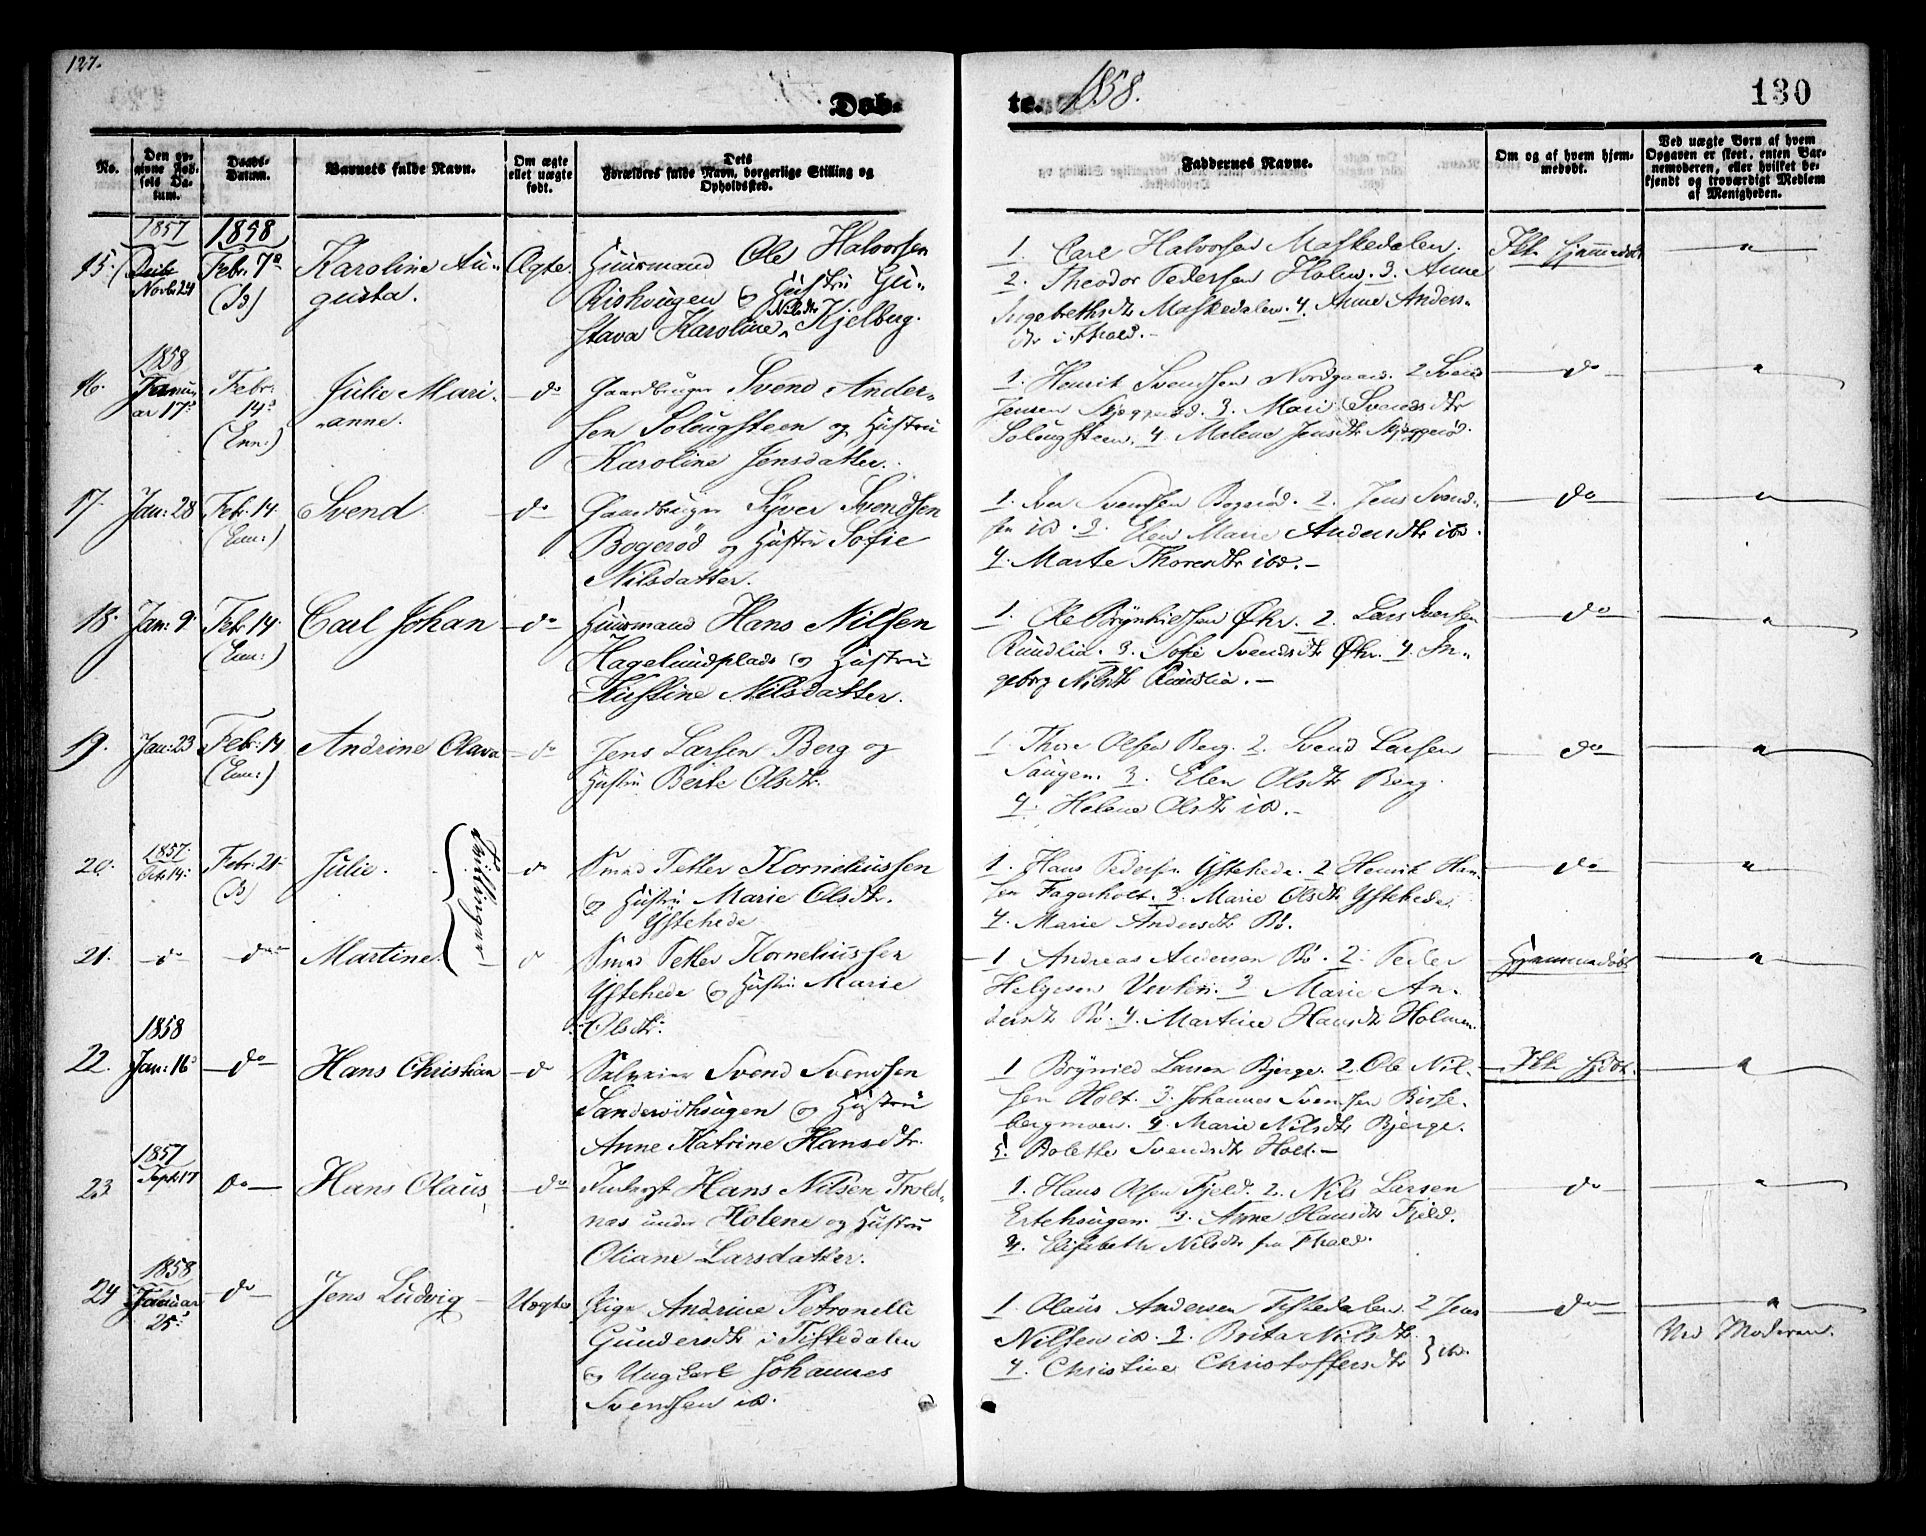 127.
Døb-
te. 1858.
130
No.
Den opgivne Fødsels Datum.
Daabs-Datum.
Barnets fulde Navn.
Om ægte ellet uægte født.
Dets Forældres fulde Navn, borgerlige Stilling og Opholdssted.
Faddernes Navne.
Om og af hvem hjemmedøbt.
Ved uægte Børn af hvem Opgaven er skeet, enten Barnemoderen, eller hvilket bekjendt og troværdigt Medlem af Menigheden.
1857 1858
15. Novbr 24 Febr. 7de (Is) Karoline Au-
gusta. Ægte. Huusmand Ole Halvorsen
Rishougen og Hustru Gu-
stava Karoline Nilsdtr Kjelberg.
1. Carl Halvorsen Maskedalen.
2. Theodor Pedersen Holm. 3. Anne
Ingebethsdtr Maskedalen. 4. Anne Anders-
dtr i Fhald.-
Ikke hjemmedøbt "
1858
16. Januar 17de Febr. 14de (Enn:) Julie Mari-
anne. do Gaardbruger Svend Ander-
sen Solougsteen og Hustru
Karoline Jensdatter.
1. Henrik Svendsen Nordgaard. 2 Svend
Jensen. 3. Mari Svendsdtr
Solougsteen. 4. Malene Jensdtr
do "
17. Jan: 28 Feb: 14 (Enn:) Svend. do Gaardbruger Syver Svendsen
Bogerød og Hustru Sofie
Nilsdatter.
1. Iver Svendsen Bogerød. 2. Jens Svend-
sen ibd. 3. Elen Marie Andersdtr ibd.
4. Marte Thoresdtr ibd.-
do "
18. Jan: 9 Feb: 14 (Enn:) Carl Johan do Huusmand Hans Nilsen
Hagelundplads og Hustru
Kristine Nilsdatter.
1. Ole Brynhildsen Øhr. 2. Lars Iversen
Rundlia. 3. Sofie Svendsdtr Øhr. 4. In-
geborg Nilsdtr Rundlia.-
do "
19. Jan: 23 Feb: 14 (Enn:) Andrine Olava do Jens Larsen Berg og
Hustru Berte Olsdtr.
1. Thore Olsen Berg. 2. Svend Larsen
Saugen. 3. Elen Olsdtr Berg
4. Helene Olsdtr ibd.-
do "
1857.
20. Oct: 14. Febr. 21 (Is) Julie. Tvillinger do Smed Petter Korneliussen
og Hustru Marie Olsdtr.
Ystehede
1. Hans Pedersen Ystehede. 2 Henrik Han-
sen Fagerholt. 3. Marie Olsdtr Ystehede.
4. Marie Andersdtr Bø.
do "
21. do do Martine. do Smed Petter Korneliussen
Ystehede og Hustru Marie
Olsdtr.
1 Andreas Andersen Bø. 2. Peder
Helgesen. 3 Marie An-
dersdtr Bø. 4. Martine Hansdtr Holmen.
Hjemmedøbt "
1858
22. Jan: 16 do Hans Christian do Svend Svendsen
Sanderødhougen og Hustru
Anne Katrine Hansdtr.
1 Brynild Larsen Bjerge. 2 Ole Nil-
sen Holt. 3. Johannes Svendsen Risse-
bergmoen. 4. Marie Nilsdtr Bjerge.
5. Bolette Svendsdtr Holt.-
Ikke hjdbt. "
1857
23. Sept: 17 do Hans Olaus do Inderst Hans Nilsen Trold-
nas under Holene og Hustru
Oliane Larsdatter.
1. Hans Olsen Fjeld. 2. Nils Larsen
Ertehougen. 3. Anne Hansdtr Fjeld.
4. Elisebeth Nilsdtr fra Fhald.
do "
1858
24 Januar 25de do Jens Ludvig Uægte Pige Andrine Petronelle
Gundersdtr i Tistedalen
og Ungkarl Johannes
Svendsen ibd.
1. Olaus Andersen Tistedalen. 2 Jens
Nilsen ibd. 3. Brita Nilsdtr
4. Christine Christoffersdtr } ibd.
do "
Ved Moderen.